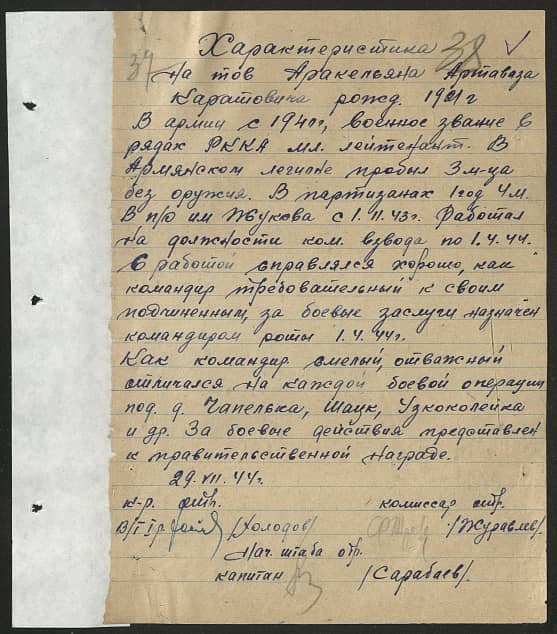 Характеристика
37 38
На тов Аракельяна Артаваза
Каратовича рожд. 1921г
В армии с 1940г, военное звание в
рядах РККА мл. лейтенант. В
Армянском легионе пробыл 3 м-ца
без оружия. В партизанах 1 год 4 м.
В п/о им Жукова с 1.11.43г. Работал
на должности ком. взвода по 1.4.44.
С работой справлялся хорошо, как
командир требовательный к своим
подчиненным, за боевые заслуги назначен
командиром роты 1.4.44г.
Как командир смелый, отважный
отличался на каждой боевой операции
под. д. Чапелька, Шацк, Узкоколейка
и др. За боевые действия представлен
к правительственной награде.
29.VII.44г.
к-р. отр. комиссар отр.
/Холодов/ /Журавлев/
Нач. штаба отр.
капитан /Сарабаев/